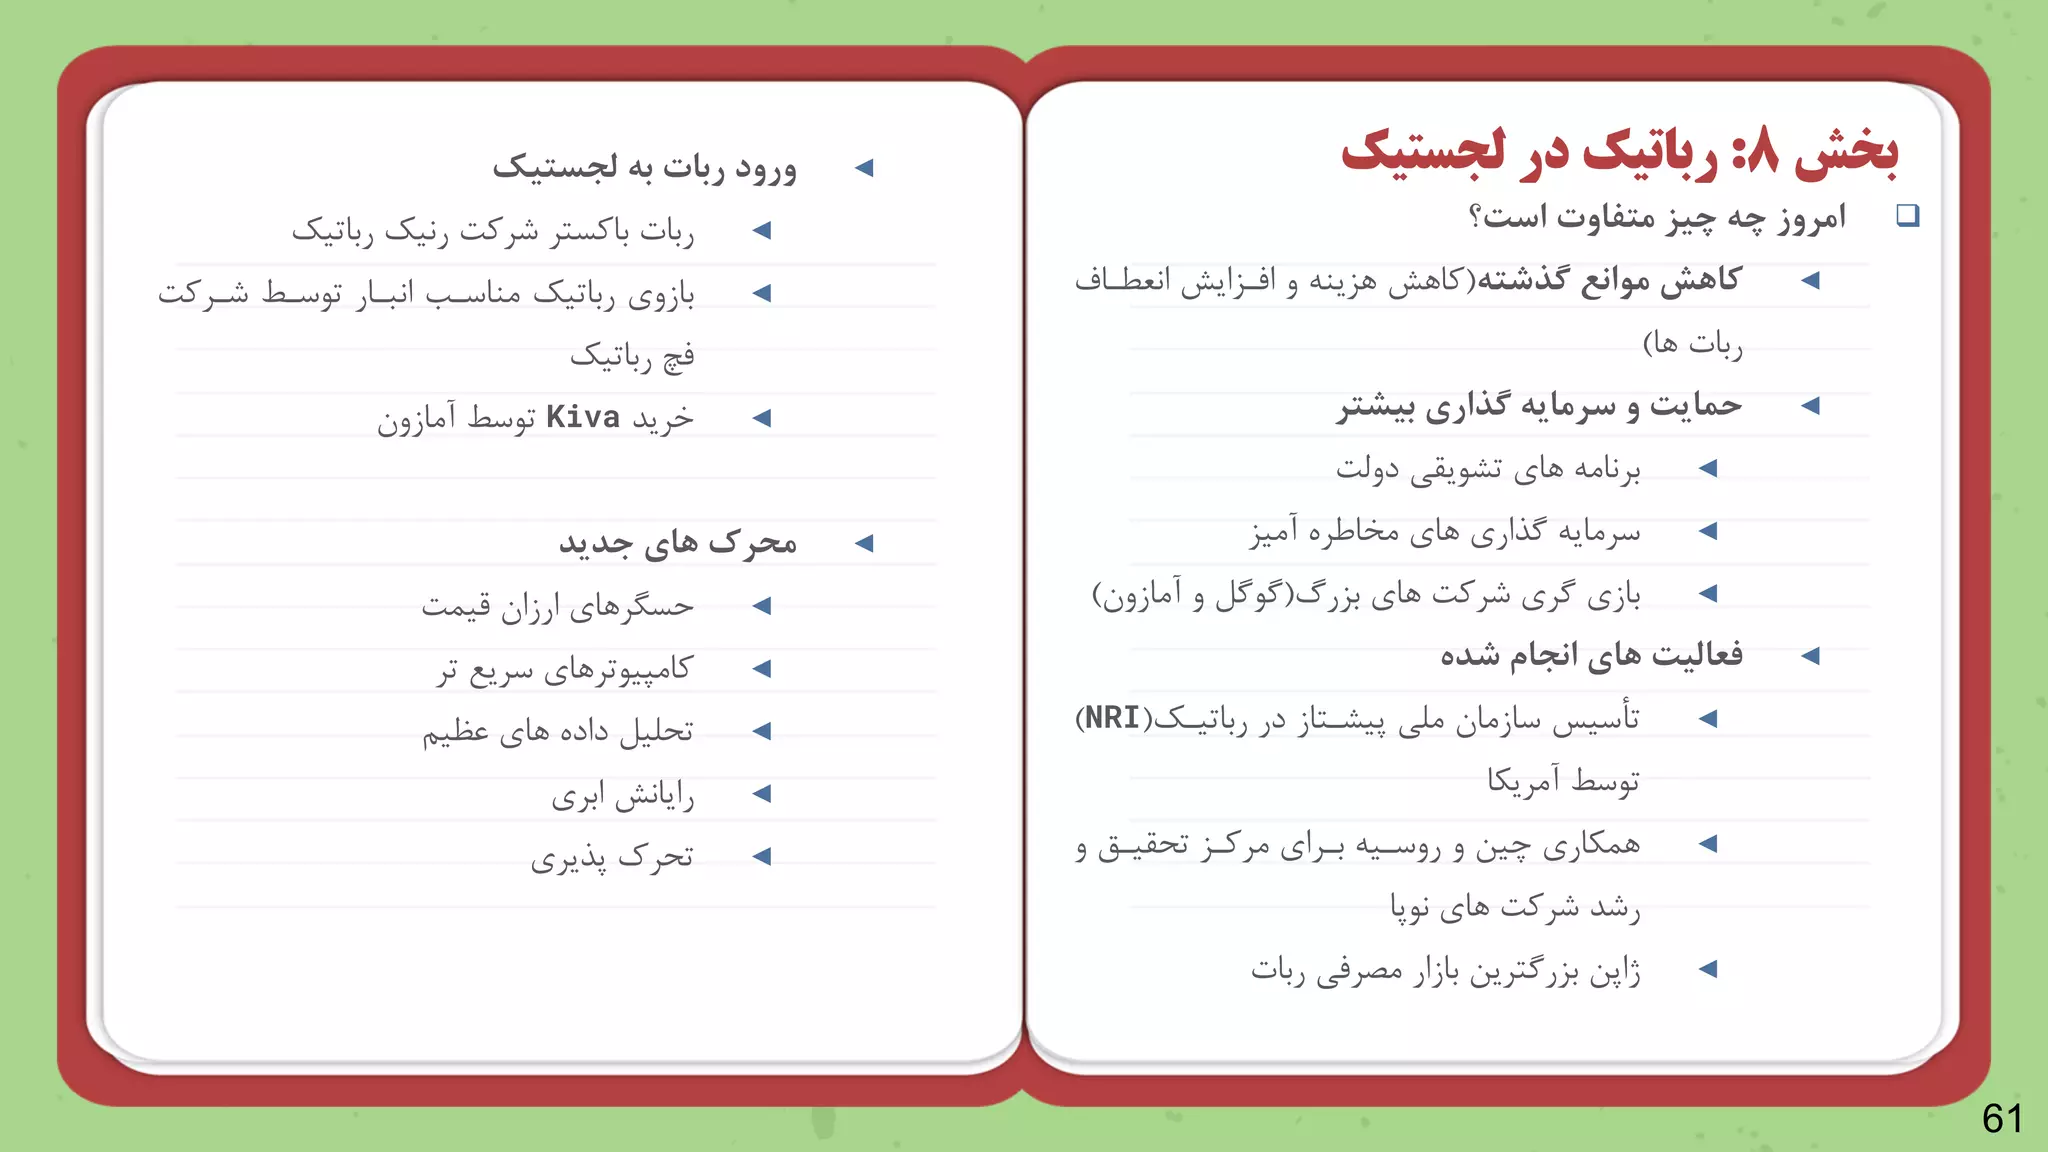 بخش ۸: رباتیک در لجستیک
امروز چه چیز متفاوت است؟
کاهش موانع گذشته(کاهش هزینه و افـزایش انعطـاف
ربات ها)
حمایت و سرمایه گذاری بیشتر
برنامه های تشویقی دولت
سرمایه گذاری های مخاطره آمیز
بازی گری شرکت های بزرگ(گوگل و آمازون)
فعالیت های انجام شده
تأسیس سازمان ملی پیشـتاز در رباتیـک(NRI)
توسط آمریکا
همکاری چین و روسـیه بـرای مرکـز تحقیـق و
رشد شرکت های نوپا
ژاپن بزرگترین بازار مصرفی ربات
ورود ربات به لجستیک
ربات باکستر شرکت رنیک رباتیک
بازوی رباتیک مناسـب انبـار توسـط شـرکت
فچ رباتیک
خرید Kiva توسط آمازون
محرک های جدید
حسگرهای ارزان قیمت
کامپیوترهای سریع تر
تحلیل داده های عظیم
رایانش ابری
تحرک پذیری
61